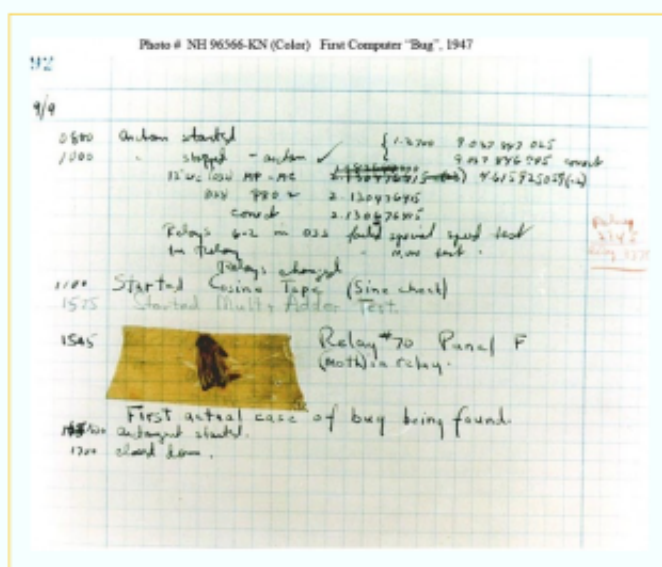 Photo # NH 96566-KN (Color) First Computer "Bug", 1947
92
9/9
0800 antan started
1000 " stopped - antan ✓ { 1.2700 9.037 847 025
9.037 846 995 correct
13"uc (032) MP - MC 4.615925059(-2)
033 PRO 2 2.130476415
correct 2.130676415
Relays 6-2 in 033 failed special speed test
in Relay " test.
Relays changed
1100 Started Cosine Tape (Sine check)
1525 Started Mult+Adder Test.
1545 Relay #70 Panel F
(moth) in relay.
First actual case of bug being found.
antangent started.
1700 closed down.